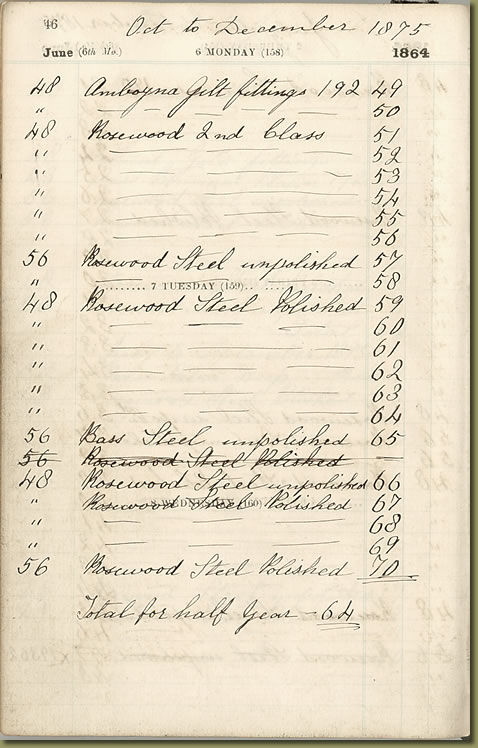 46 Oct to December 1875
June (6th Mo.) 6 MONDAY (158) 1864
48 Amboyna Gilt fittings 192 49
" — — — 50
48 Rosewood 2nd Class 51
" — — — 52
" — — — 53
" — — — 54
" — — — 55
" — — — 56
56 Rosewood Steel unpolished 57
" — — — 58
7 TUESDAY (159)
48 Rosewood Steel Polished 59
" — — — 60
" — — — 61
" — — — 62
" — — — 63
" — — — 64
56 Bass Steel unpolished 65
56 Rosewood Steel Polished —
48 Rosewood Steel unpolished 66
Rosewood Steel Polished 67
8 WEDNESDAY (160)
" — — — 68
" — — — 69
56 Rosewood Steel Polished 70
Total for half Year - 64